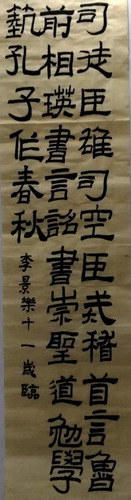 司徒臣雄司空臣戒稽首言魯
前相瑛書言詔書崇聖道勉學
藝孔子作春秋
李景樂十一歲臨